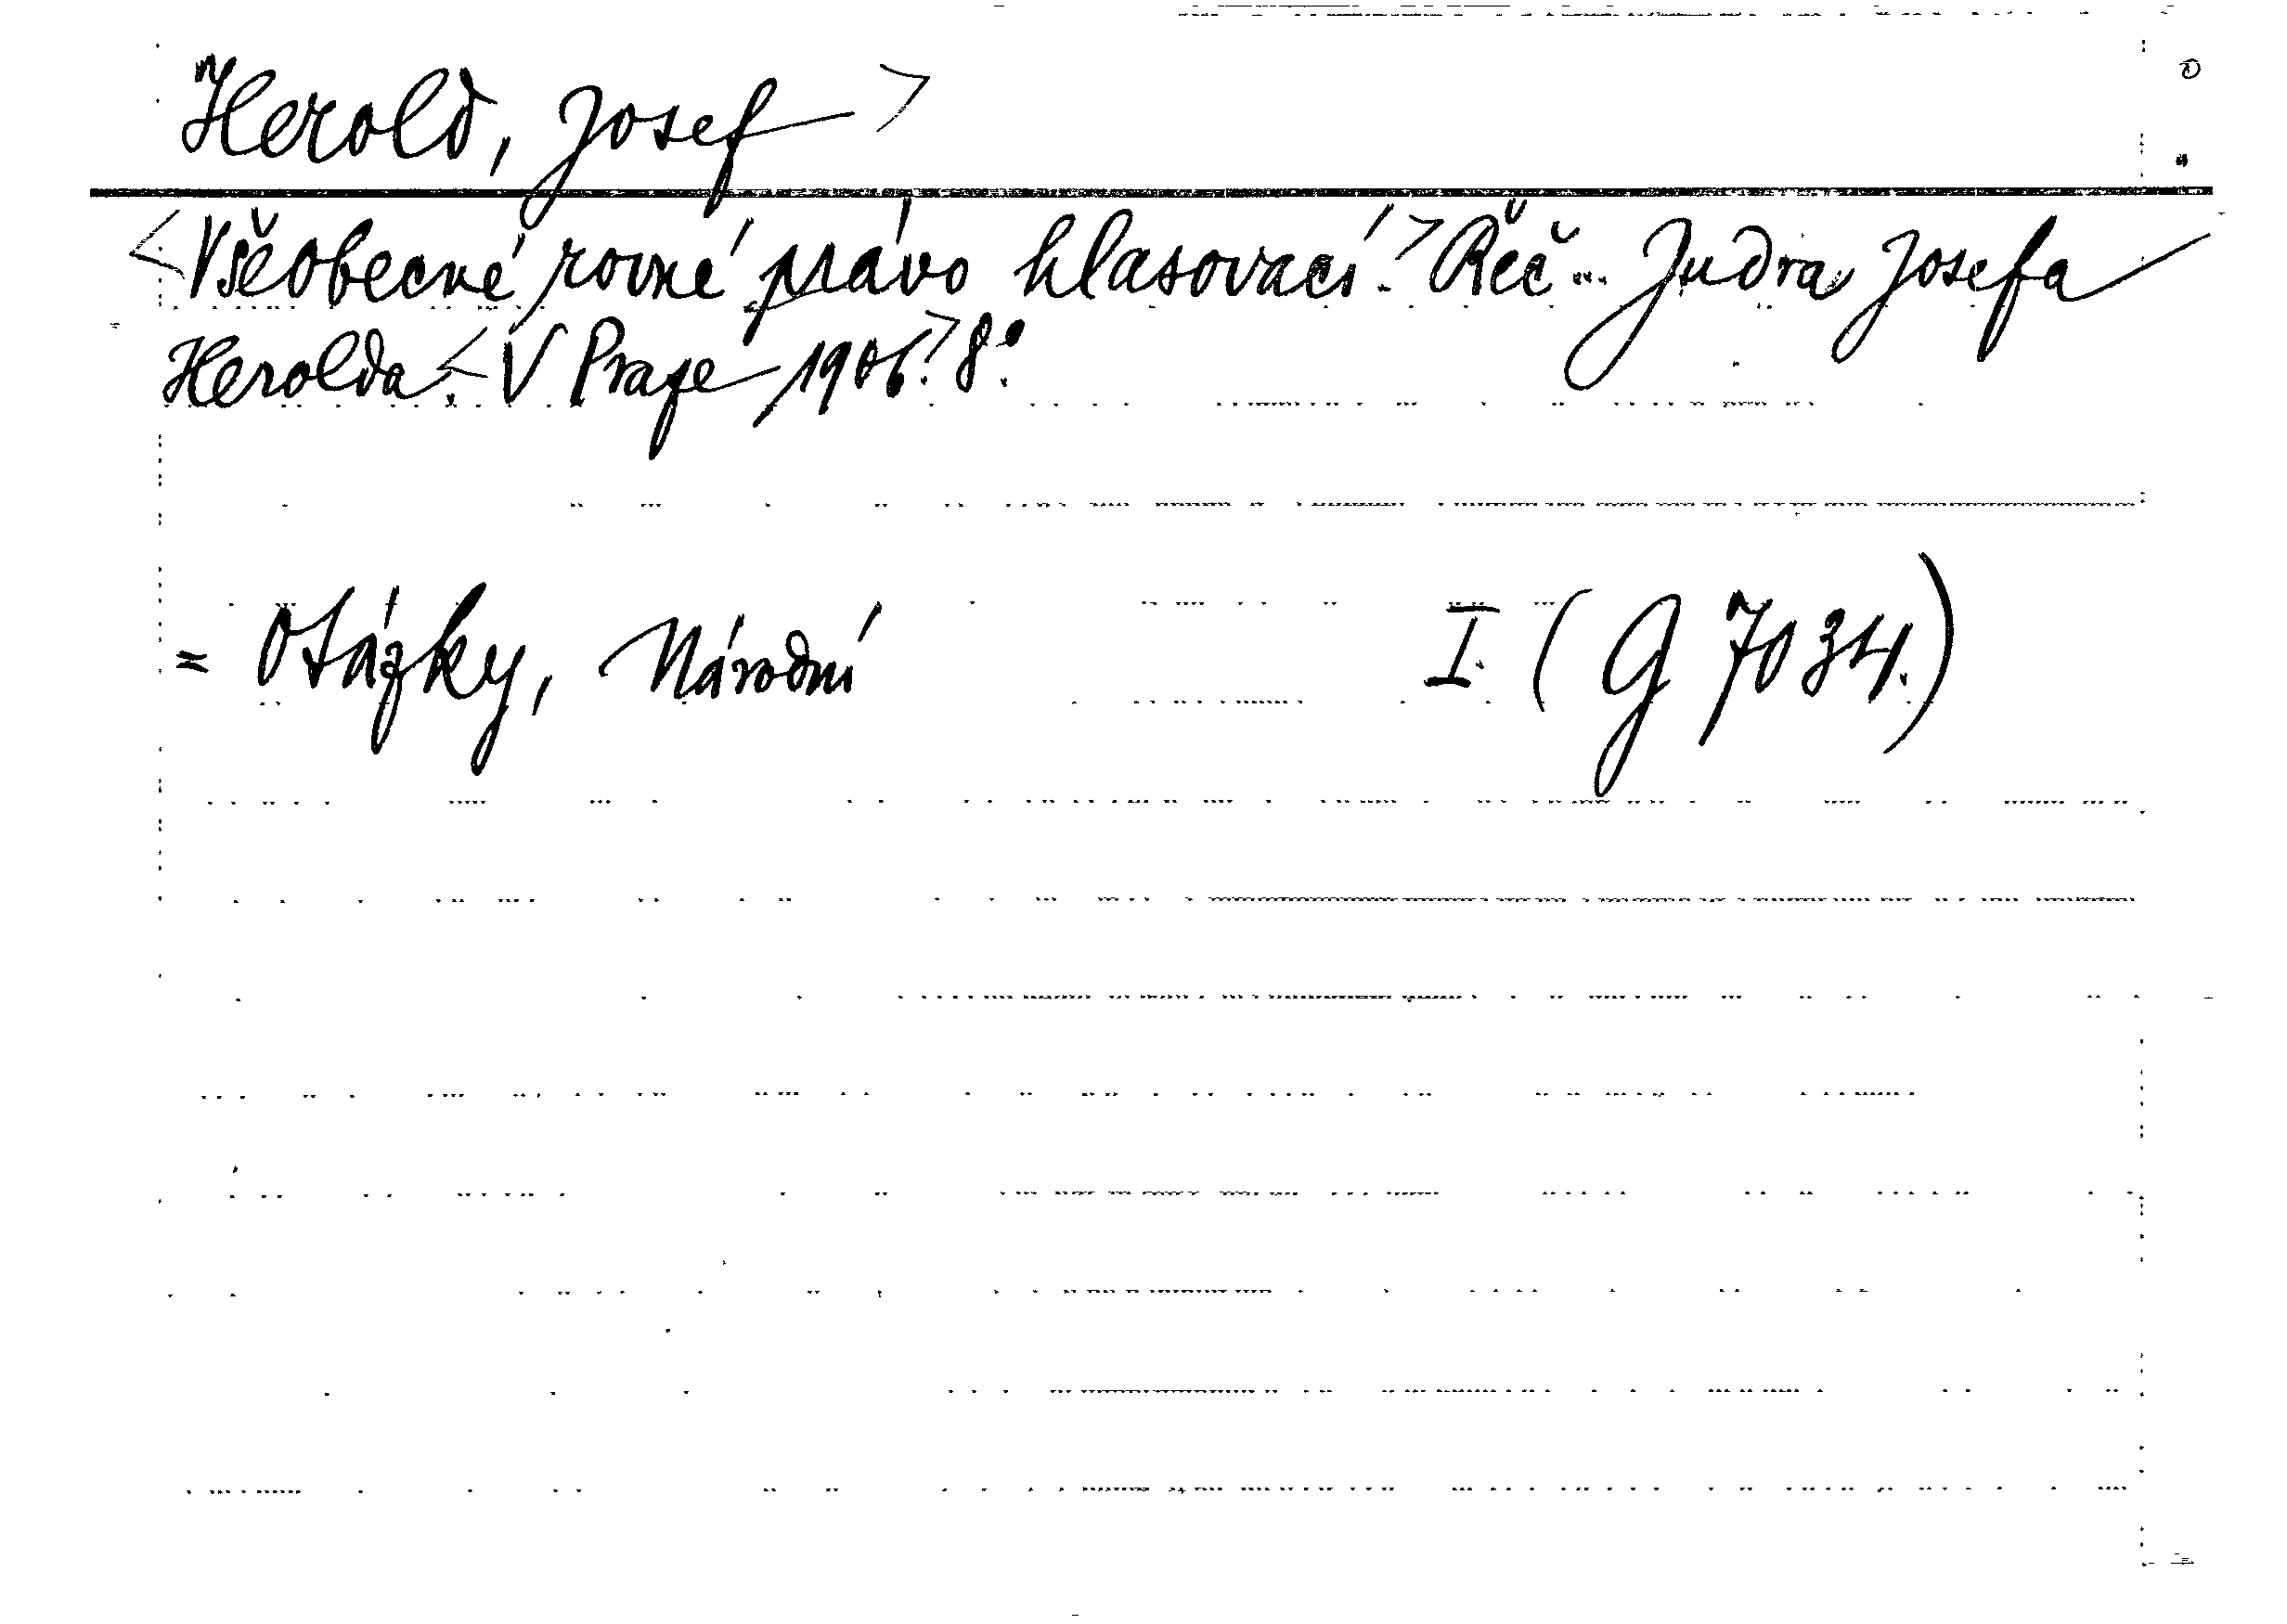 Herold, Josef >
< Všeobecné rovné právo hlasovací. > Řeč ... Judra Josefa
Herolda. < V Praze 1906. > 8°.
= Otázky, Národní I. (G 7034.)